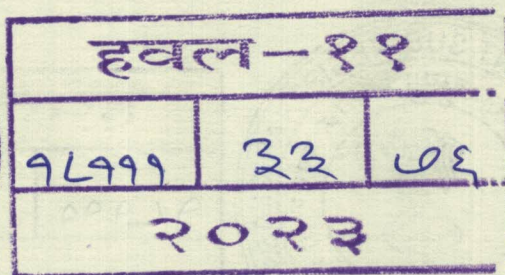 हवल-११
१८१११ ३३ ७६
२०२३